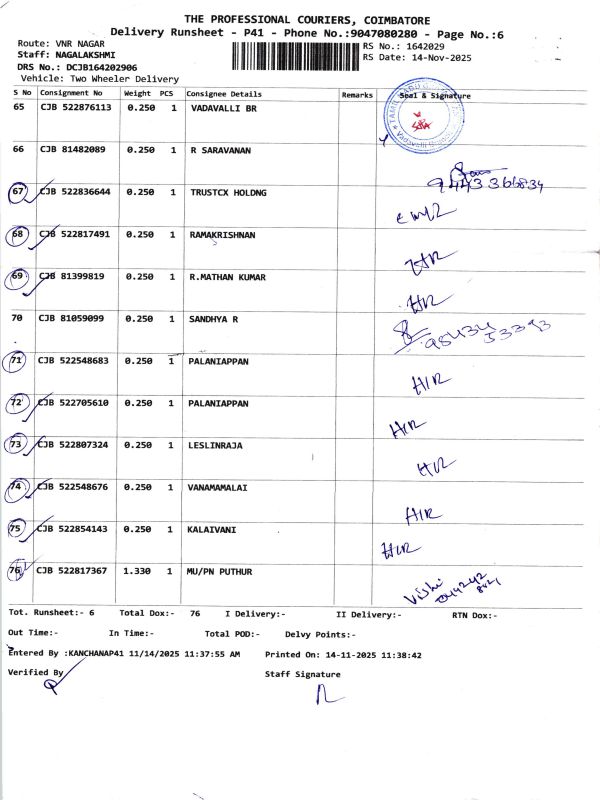 THE PROFESSIONAL COURIERS, COIMBATORE
Delivery Runsheet - P41 - Phone No.:9047080280 - Page No.:6
Route: VNR NAGAR
Staff: NAGALAKSHMI
DRS No.: DCJB164202906
Vehicle: Two Wheeler Delivery
RS No.: 1642029
RS Date: 14-Nov-2025
S No Consignment No Weight PCS Consignee Details Remarks Seal & Signature
65 CJB 522876113 0.250 1 VADAVALLI BR
66 CJB 81482089 0.250 1 R SARAVANAN
67 CJB 522836644 0.250 1 TRUSTCX HOLDNG
68 CJB 522817491 0.250 1 RAMAKRISHNAN HIR
69 CJB 81399819 0.250 1 R.MATHAN KUMAR HIR
70 CJB 81059099 0.250 1 SANDHYA R
71 CJB 522548683 0.250 1 PALANIAPPAN HIR
72 CJB 522705610 0.250 1 PALANIAPPAN HIR
73 CJB 522807324 0.250 1 LESLINRAJA HIR
74 CJB 522548676 0.250 1 VANAMAMALAI HIR
75 CJB 522854143 0.250 1 KALAIVANI HIR
76 CJB 522817367 1.330 1 MU/PN PUTHUR
Tot. Runsheet:- 6 Total Dox:- 76 I Delivery:- II Delivery:- RTN Dox:-
Out Time:- In Time:- Total POD:- Delvy Points:-
Entered By :KANCHANAP41 11/14/2025 11:37:55 AM Printed On: 14-11-2025 11:38:42
Verified By Staff Signature